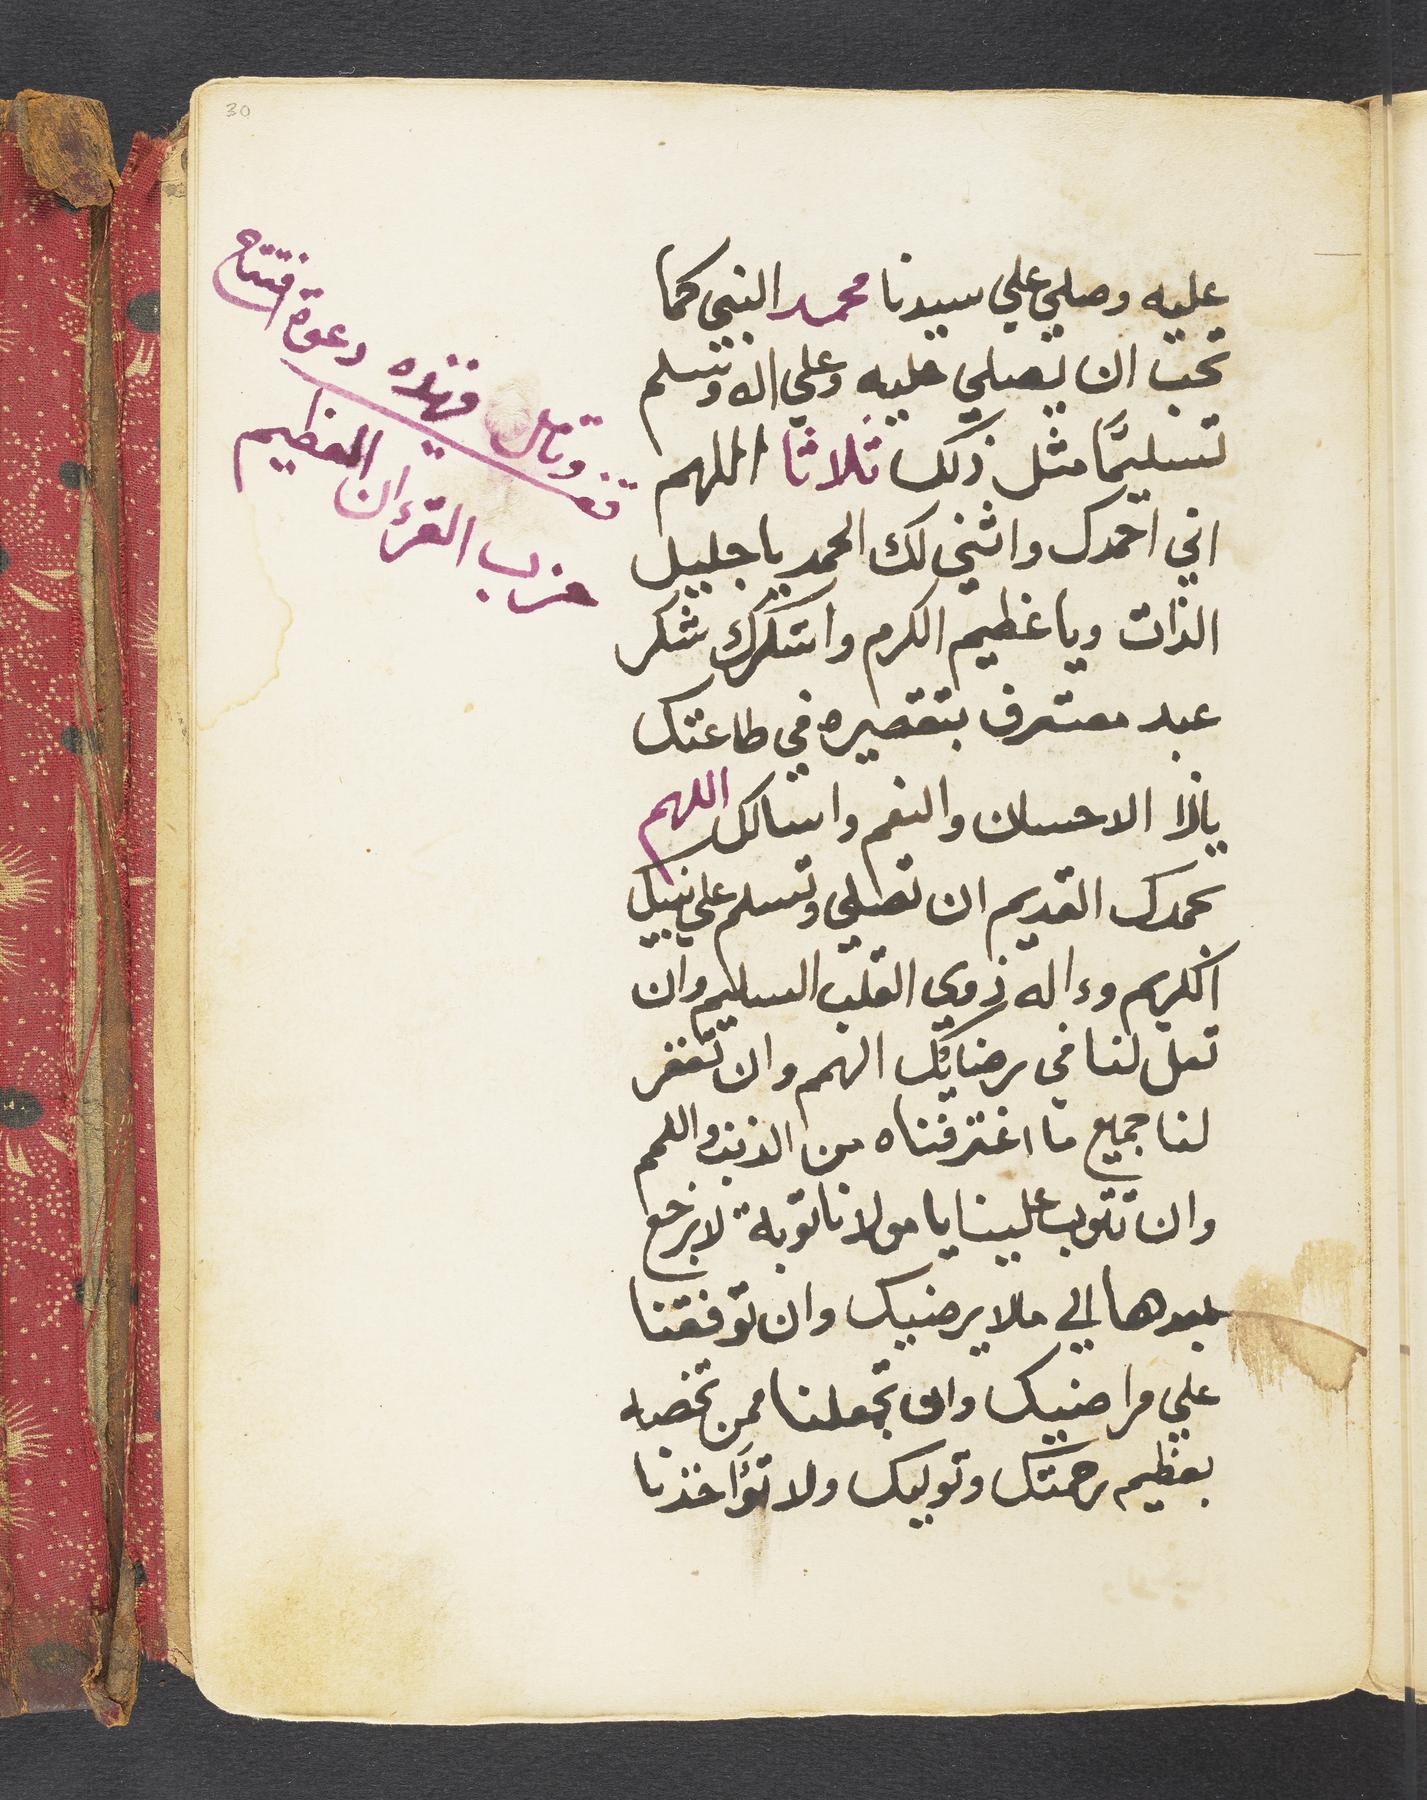 30
عليه وصلي علي سيدنا محمد النبي كما
تحب ان يصلي عليه وعلي اله وتسلم
تسليمًا مثل ذلك ثلاثا اللهم
اني احمدك واثني لك الحمد يا جليل
الذات ويا عظيم الكرم واشكرك شكر
عبد معترف بتقصيره في طاعتك
ياذا الاحسان والنعم واسالك اللهم
بحمدك القديم ان تصلي وتسلم علي نبيك
الكريم وءاله ذوي القلب السليم وان
لنا في رضايك الهمم وان تغفر
لنا جميع ما اغترفناه من الذنب واللمم
وان تتوب علينا يا مولانا توبة لا نرجع
بعدها الي ما لا يرضيك وان توفقنا
علي مراضيك وان تجعلنا ممن تخصه
بعظيم رحمتك وتوليك ولا تؤاخذنا
فهذه دعوة افتتاح
حزب القرءان العظيم